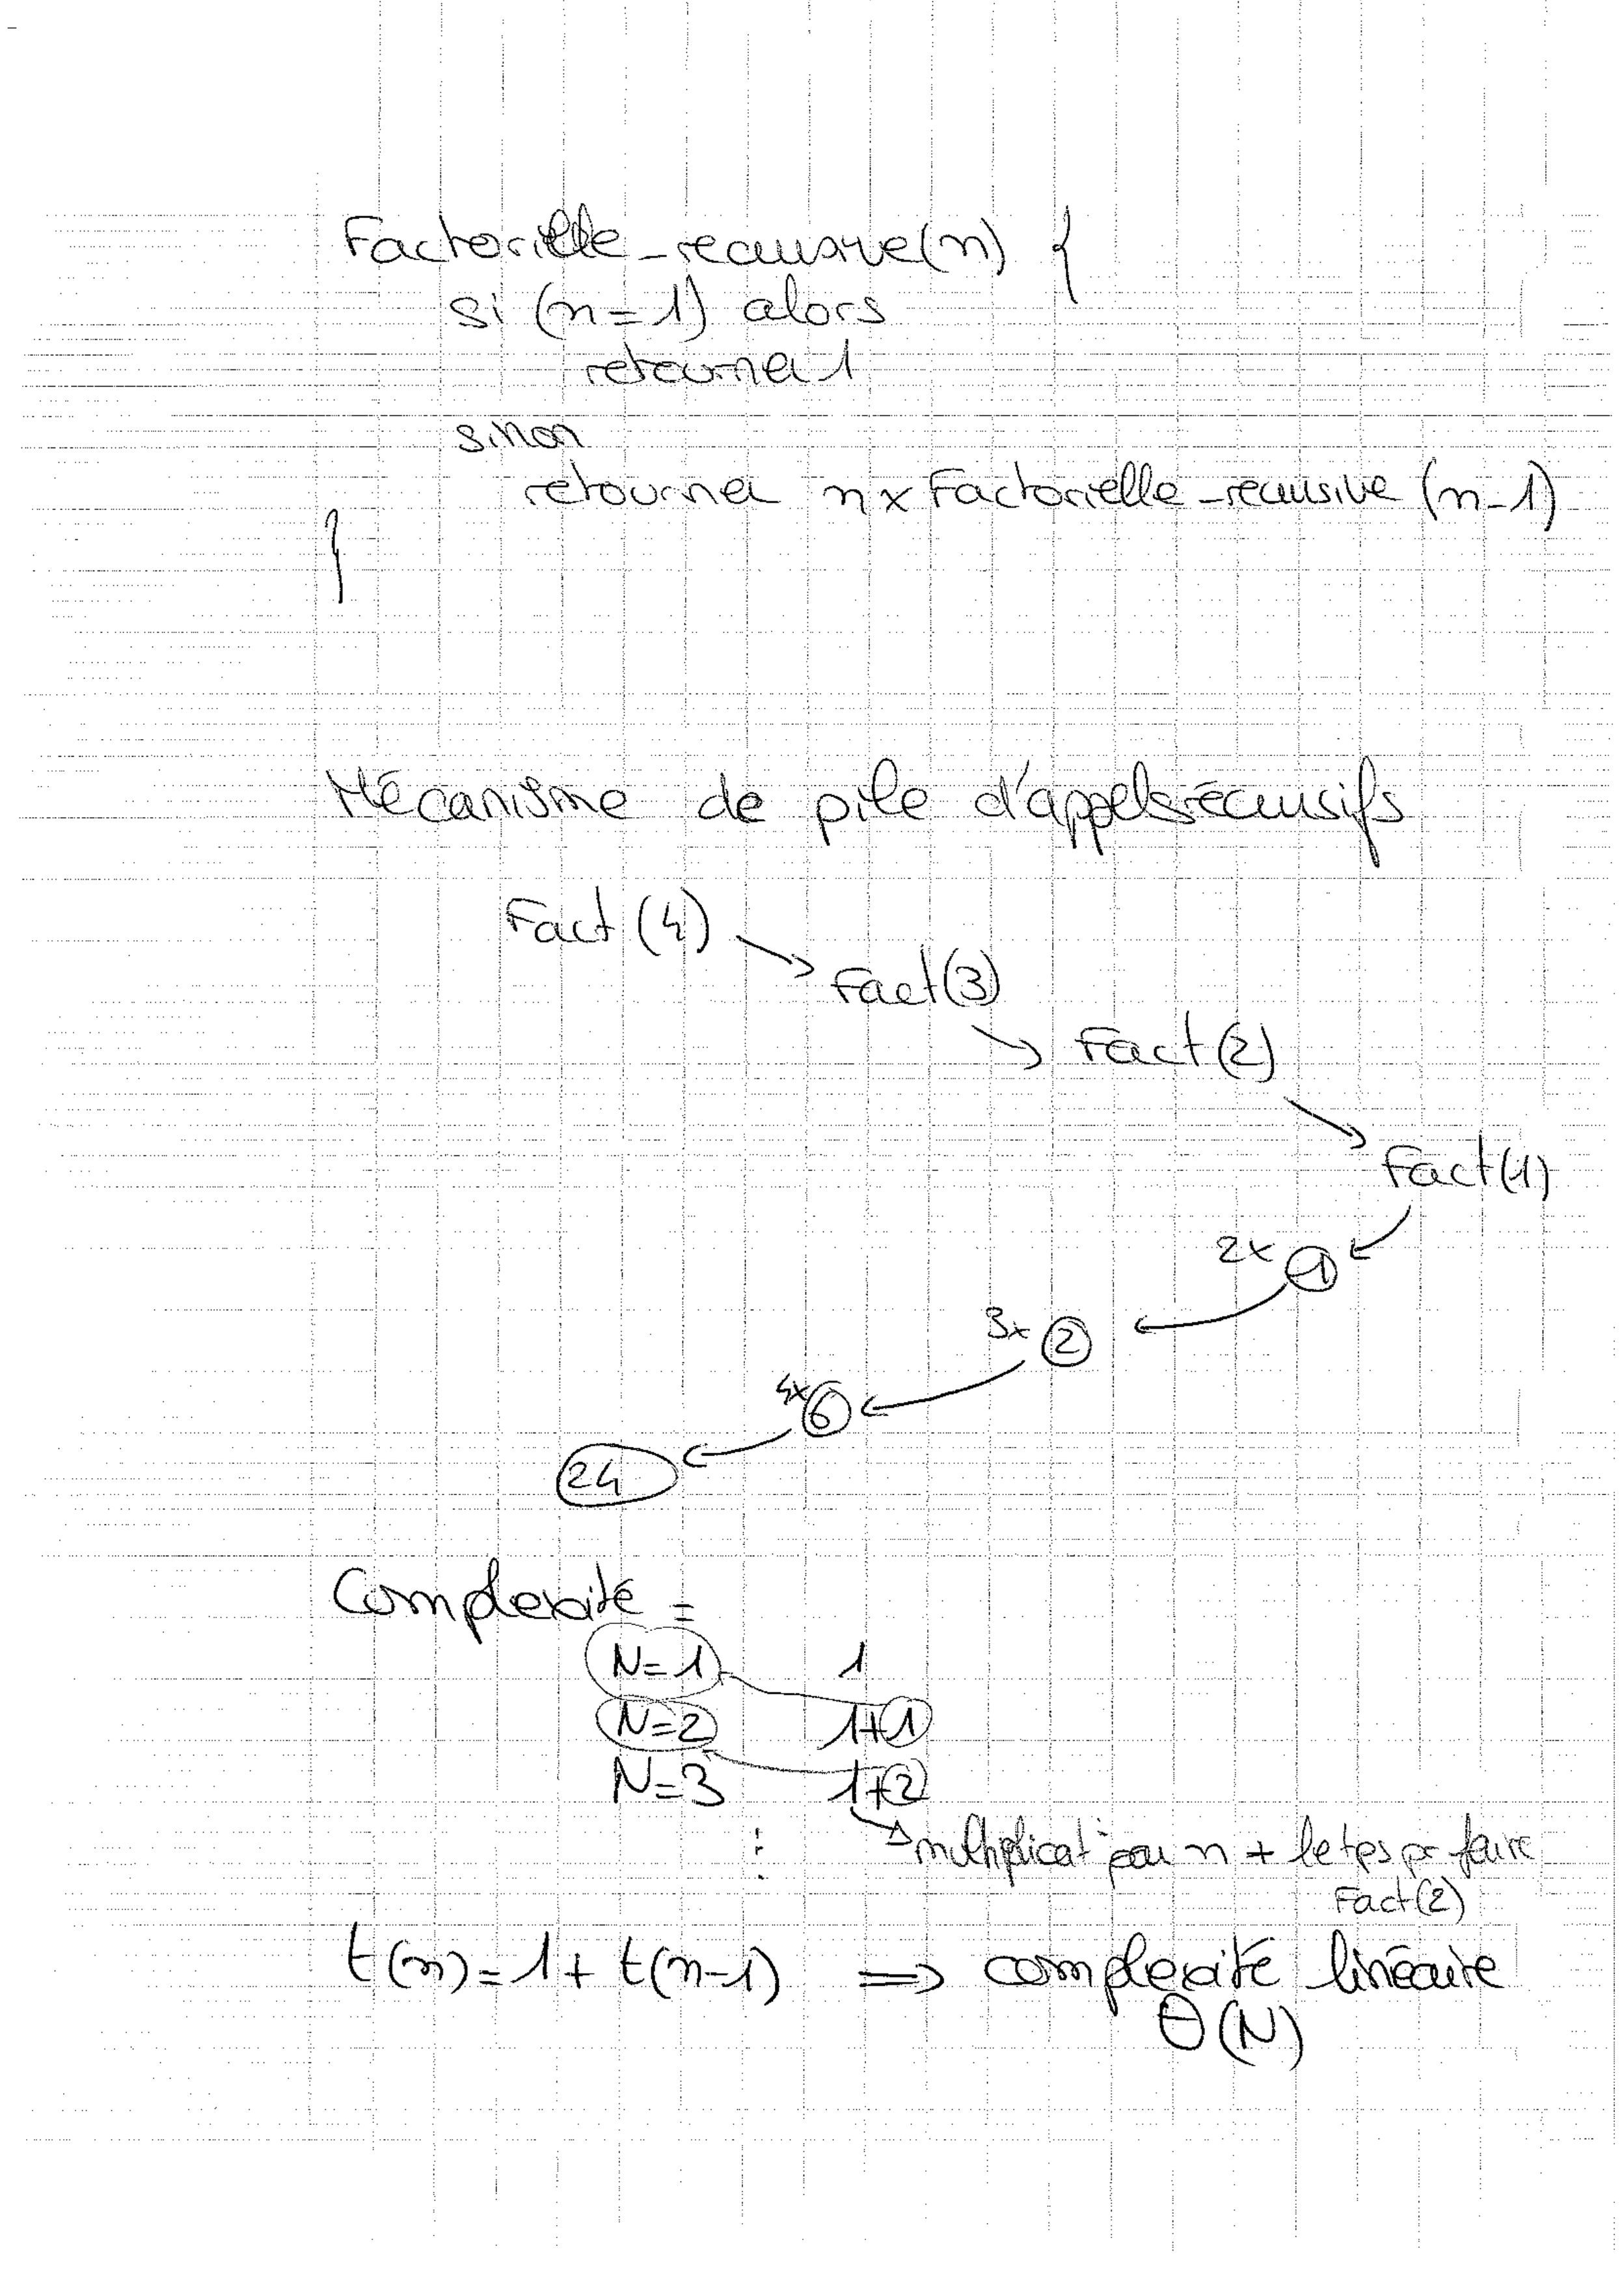 Factorielle_recursive(n) {
si (n=1) alors
retourner 1
sinon
retourner n x Factorielle_recursive (n-1)
}
Mécanisme de pile d'appels récursifs
Fact (4)
Fact(3)
Fact(2)
Fact(1)
2x 1
3x 2
4x 6
24
Complexité =
N=1 1
N=2 1+1
N=3 1+2
⋮ multiplicat° par n + le tps pr faire
Fact(2)
t(n)=1+ t(n-1) => complexité linéaire
Θ(N)